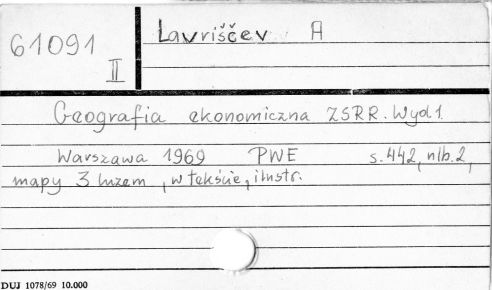 61091
II
Lavriščev A
Geografia ekonomiczna ZSRR. Wyd 1.
Warszawa 1969 PWE s. 442, nlb. 2,
mapy 3 luzem, w tekście, ilustr.
DUJ 1078/69 10.000